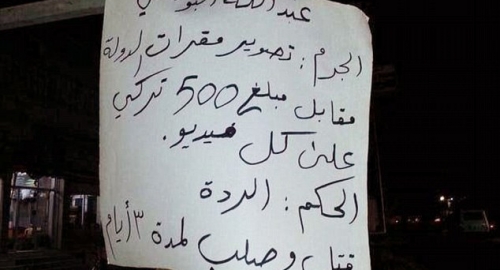 عبد الله
الجرم : تصوير مقرات الدولة
مقابل مبلغ 500 تركي
على كل فيديو .
الحكم : الردة
قتل وصلب لمدة ٣ أيام